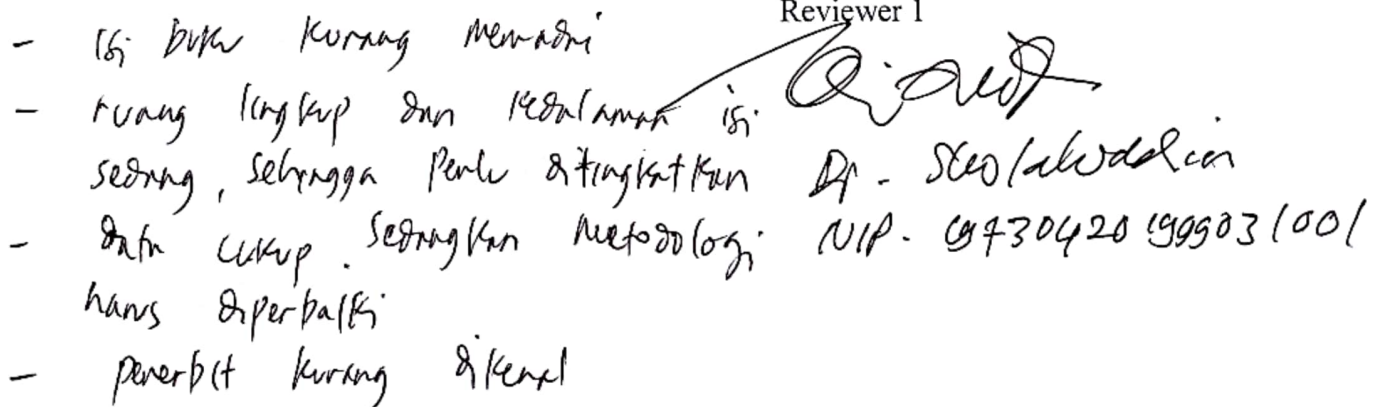 Reviewer 1
- isi buku kurang memadai
- ruang lingkup dan kedalaman isi
sedang, sehingga perlu ditingkatkan
- data cukup. sedangkan metodologi
harus diperbaiki
- penerbit kurang dikenal
Dr.
NIP. 197304201999031001